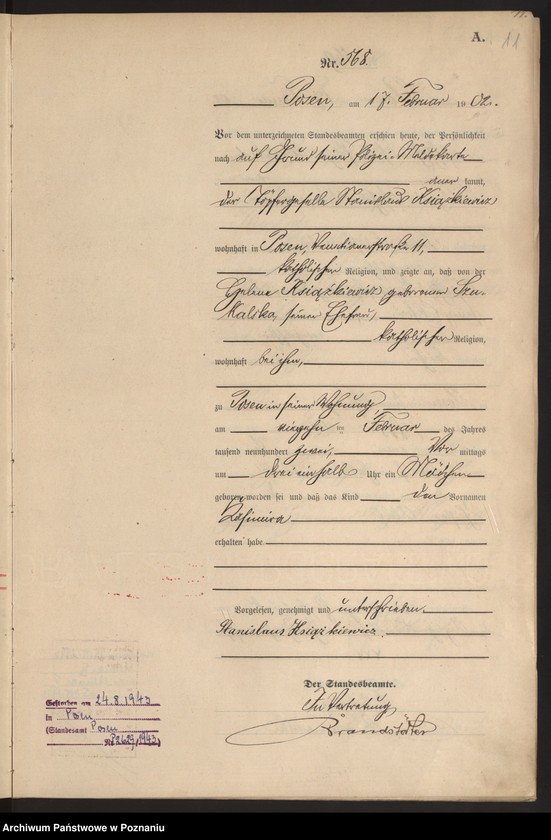 11.
A.
11
Nr. 568.
Posen, am 17. Februar 1902.
Vor dem unterzeichneten Standesbeamten erschien heute, der Persönlichkeit
nach auf Grund seiner Polizei-Meldekarte
anerkannt,
der Töpfergeselle Stanislaus Książkiewicz
wohnhaft in Posen, Venetianerstraße 11,
katholischer Religion, und zeigte an, daß von der
Helene Książkiewicz, geborenen Szu-
kalska, seiner Ehefrau,
katholischer Religion,
wohnhaft bei ihm,
zu Posen in seiner Wohnung
am vierzehnten Februar des Jahres
tausend neunhundert zwei, Vor mittags
um drei einhalb Uhr ein Mädchen
geboren worden sei und daß das Kind den Vornamen
Kasimira
erhalten habe
Vorgelesen, genehmigt und unterschrieben.
Stanislaus Książkiewicz.
Der Standesbeamte.
In Vertretung
Brandstäter
Gestorben am 24.8.1943
in Posen
(Standesamt Posen
Nr. 2629/1943)
Archiwum Państwowe w Poznaniu